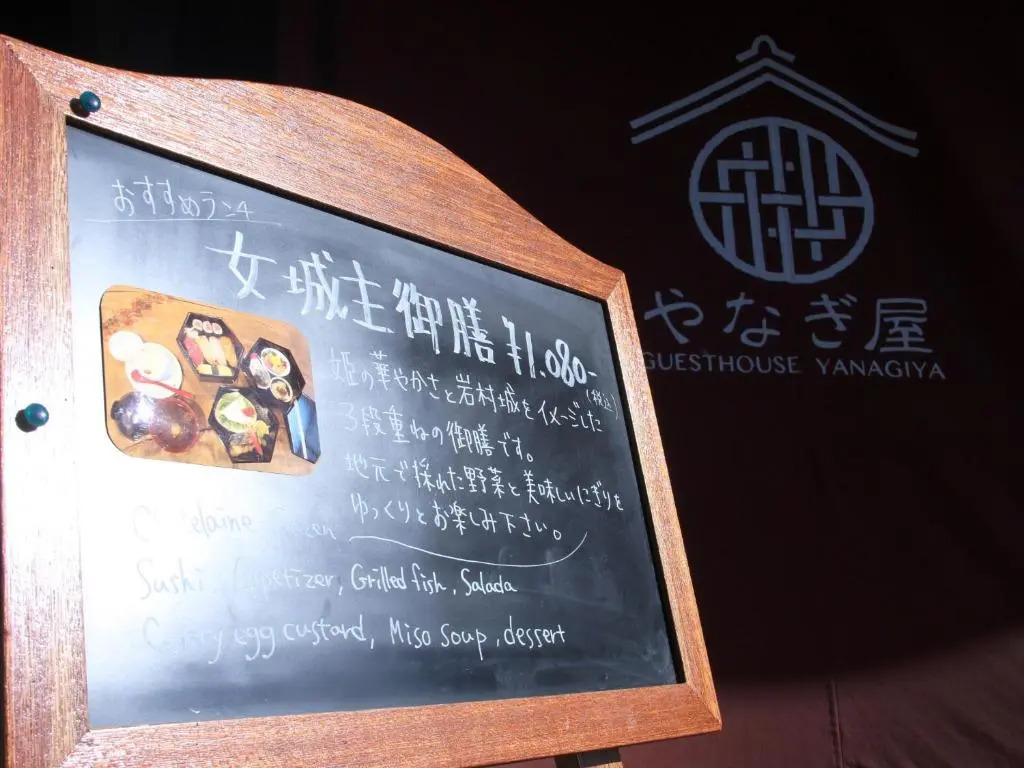 おすすめランチ
女城主御膳 ¥1.080-
(税込)
姫の華やかさと岩村城をイメージした
3段重ねの御膳です。
地元で採れた野菜と美味しいにぎりを
ゆっくりとお楽しみ下さい。
Sushi, Appetizer, Grilled fish, Salada
egg custard, Miso soup, dessert
やなぎ屋
GUESTHOUSE YANAGIYA